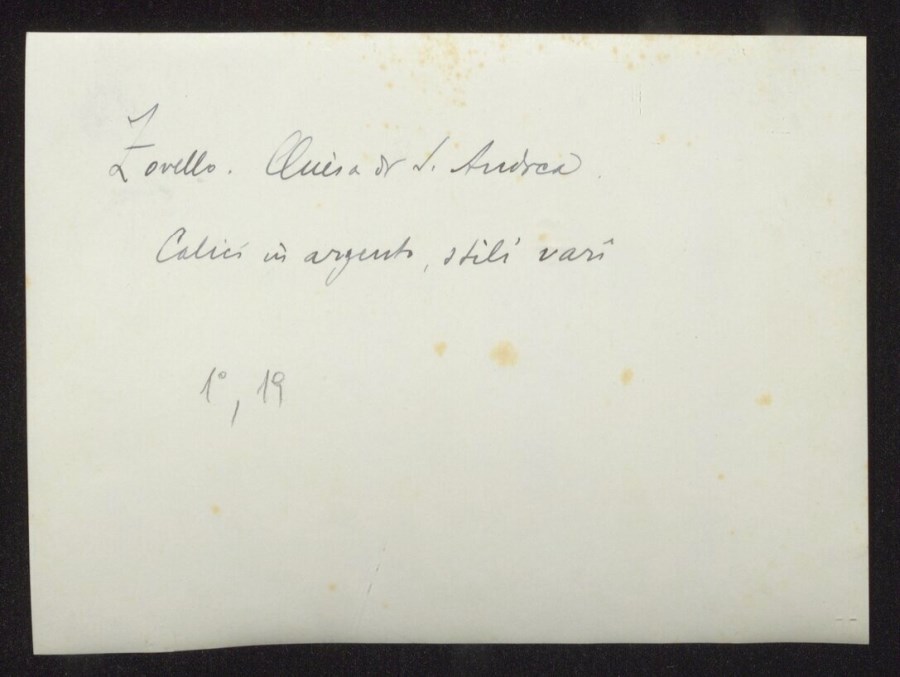 Zovello. Chiesa di S. Andrea.
Calici in argento, stili vari
1°, 19